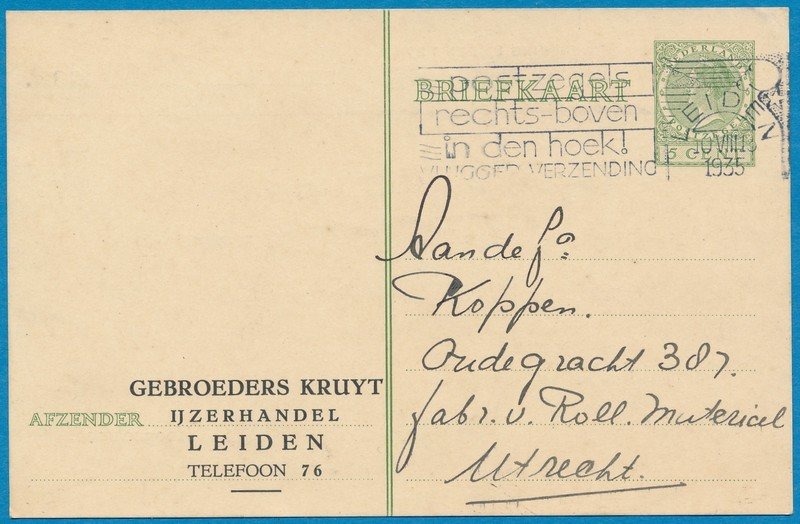 NEDERLAND
BRIEFKAART
postzegels
rechts-boven
in den hoek!
VLUGGER VERZENDING
LEIDEN
10 VIII 15
1935
5 CENT
Aan de Fa
Koppen.
Oudegracht 387.
fabr. v. Roll. Materieel
Utrecht.
GEBROEDERS KRUYT
AFZENDER IJZERHANDEL
LEIDEN
TELEFOON 76